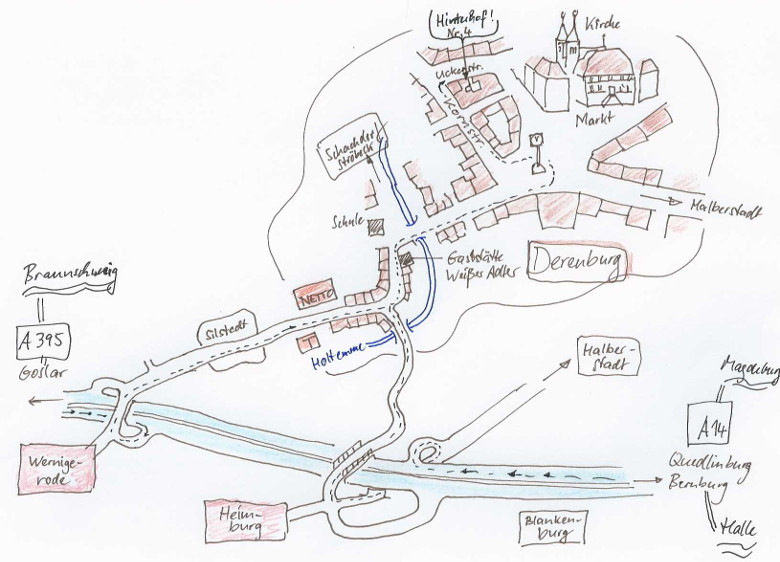 Hinterhof!
Nr. 4
Kirche
Uckerstr.
Kornstr.
Markt
Schachdorf
Ströbeck
Schule
Halberstadt
Gaststätte
Weißer Adler
Derenburg
Braunschweig
A 395
Goslar
NETTO
Silstedt
Holtemme
Halber-
stadt
Magdeburg
A14
Quedlinburg
Bernburg
Halle
Wernige-
rode
Heim-
burg
Blanken-
burg